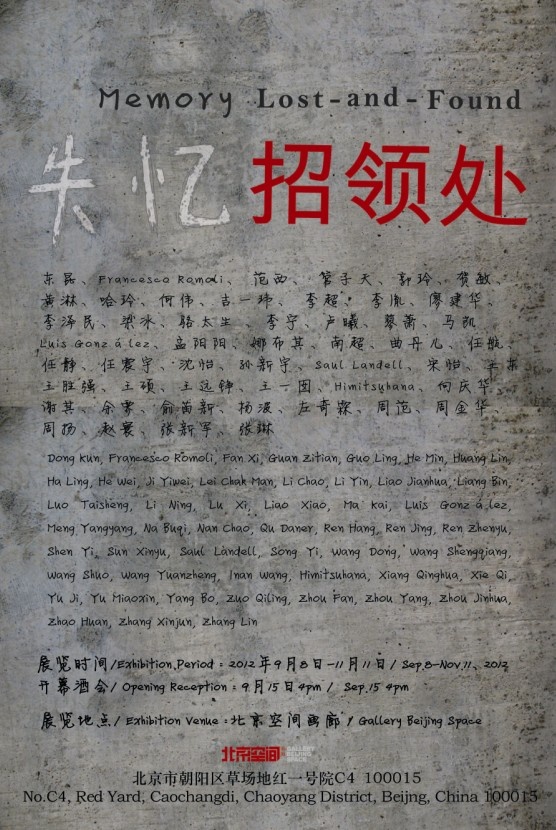 Memory Lost-and-Found
失忆招领处
东昆、Francesco Romoli、范西、管子天、郭玲、贺敏、
黄淋、哈玲、何伟、吉一玮、李超、李胤、廖建华、
李泽民、梁冰、骆太生、李宁、卢曦、蓼萧、马凯
Luis Gonz á lez、孟阳阳、娜布其、南超、曲丹儿、任航、
任静、任寰宇、沈怡、孙新宇、Saul Landell、宋怡、王东
王胜强、王硕、王远铮、王一囡、Himitsuhana、向庆华
谢其、余雾、俞苗新、杨波、左奇霖、周范、周金华
周扬、赵寰、张新军、张琳
Dong Kun, Francesco Romoli, Fan Xi, Guan Zitian, Guo Ling, He Min, Huang Lin,
Ha Ling, He Wei, Ji Yiwei, Lei Chak Man, Li Chao, Li Yin, Liao Jianhua, Liang Bin,
Luo Taisheng, Li Ning, Lu Xi, Liao Xiao, Ma Kai, Luis Gonz á lez,
Meng Yangyang, Na Buqi, Nan Chao, Qu Daner, Ren Hang, Ren Jing, Ren Zhenyu,
Shen Yi, Sun Xinyu, Saul Landell, Song Yi, Wang Dong, Wang Shengqiang,
Wang Shuo, Wang Yuanzheng, Inan Wang, Himitsuhana, Xiang Qinghua, Xie Qi,
Yu Ji, Yu Miaoxin, Yang Bo, Zuo Qiling, Zhou Fan, Zhou Yang, Zhou Jinhua,
Zhao Huan, Zhang Xinjun, Zhang Lin
展览时间/Exhibition Period：2012年9月8日-11月11日/Sep.8-Nov.11、2012
开幕酒会/Opening Reception：9月15日4pm/ Sep.15 4pm
展览地点/Exhibition Venue：北京空间画廊/Gallery Beijing Space
北京空间 GALLERY BEIJING SPACE
北京市朝阳区草场地红一号院C4 100015
No.C4, Red Yard, Caochangdi, Chaoyang District, Beijng, China 100015